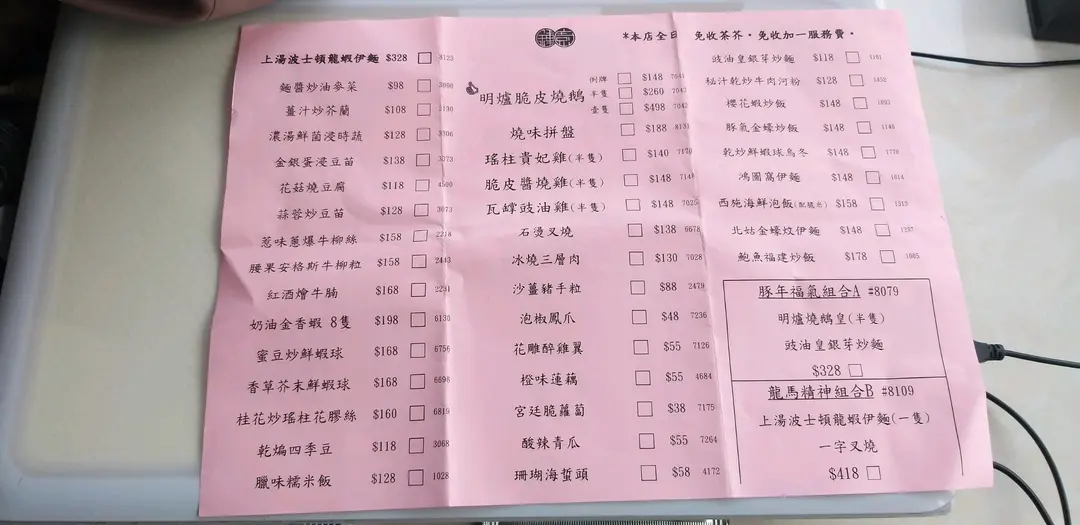 上湯波士頓龍蝦伊麵 $328 3123
麵醬炒油麥菜 $98
薑汁炒芥蘭 $108
濃湯鮮菌浸時蔬 $128
金銀蛋浸豆苗 $138
花菇燒豆腐 $118
蒜蓉炒豆苗 $128
惹味蔥爆牛柳絲 $158
腰果安格斯牛柳粒 $158
紅酒燴牛腩 $168
奶油金香蝦 8隻 $198
蜜豆炒鮮蝦球 $168
香草芥末鮮蝦球 $168
桂花炒瑤柱花膠絲 $160
乾煸四季豆 $118 3068
臘味糯米飯 $128 1028
*本店全日 免收茶芥·免收加一服務費·
明爐脆皮燒鵝
例牌 $148 7041
半隻 $260
壹隻 $498
燒味拼盤 $188
瑤柱貴妃雞(半隻) $140
脆皮醬燒雞(半隻) $148
瓦罉豉油雞(半隻) $148
石燙叉燒 $138 6678
冰燒三層肉 $130 7028
沙薑豬手粒 $88 2479
泡椒鳳爪 $48 7236
花雕醉雞翼 $55 7126
橙味蓮藕 $55 4684
宮廷脆蘿蔔 $38 7175
酸辣青瓜 $55 7264
珊瑚海蜇頭 $58 4172
豉油皇銀芽炒麵 $118
秘汁乾炒牛肉河粉 $128
櫻花蝦炒飯 $148
豚氣金蠔炒飯 $148
乾炒鮮蝦球烏冬 $148
鴻圖窩伊麵 $148
西施海鮮泡飯(配脆米) $158
北姑金蠔炆伊麵 $148
鮑魚福建炒飯 $178
豚年福氣組合A #8079
明爐燒鵝皇(半隻)
豉油皇銀芽炒麵
$328
龍馬精神組合B #8109
上湯波士頓龍蝦伊麵(一隻)
一字叉燒
$418